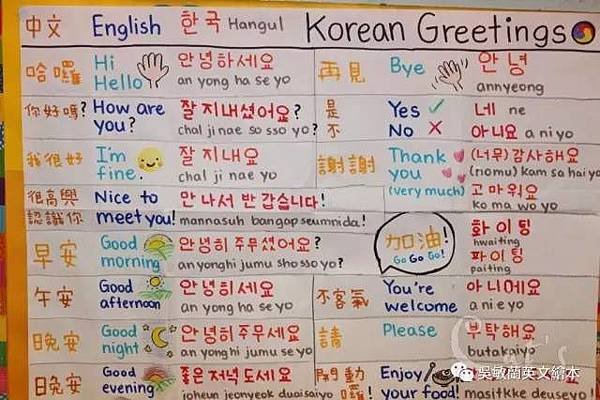 中文 English 한국 Hangul Korean Greetings
哈囉 Hi Hello 안녕하세요 an yong ha se yo
再見 Bye 안녕 annyeong
你好嗎? How are you? 잘 지내셨어요? chal ji nae so sso yo?
是 Yes 네 ne
不 No 아니요 a ni yo
我很好 I'm fine. 잘 지내요 chal ji nae yo
謝謝 Thank you (very much) (너무) 감사해요 (nomu) kam sa hai yo
고마워요 ko ma wo yo
很高興認識你 Nice to meet you! 만나서 반갑습니다! mannasuh bangap seumnida!
早安 Good morning 안녕히 주무셨어요? an yonghi jumu sho sso yo?
加油! Go Go Go! 화이팅 hwaiting
파이팅 paiting
午安 Good afternoon 안녕히세요 an yong ha se yo
不客氣 You're welcome 아니에요 a ni e yo
晚安 Good night 안녕히 주무세요 an yonghi jumu se yo
請 Please 부탁해요 butakaiyo
晚安 Good evening 좋은 저녁 도세요 joheun jeonyeok
開動囉! Enjoy your food! masitkke deuseyo!
吳敏蘭英文繪本